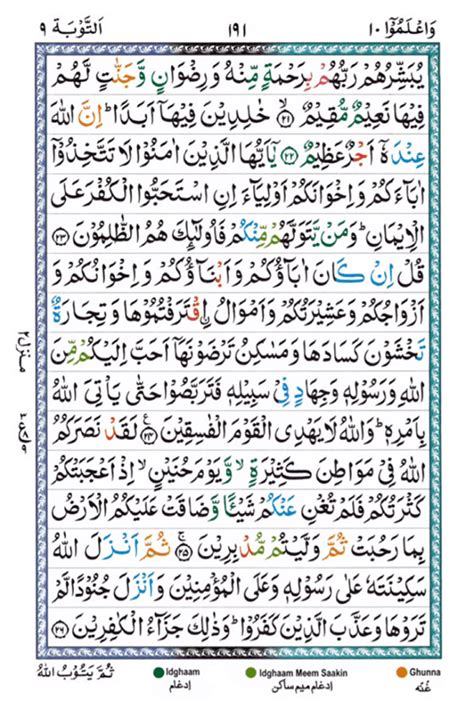 وَاعْلَمُوْٓا ١٠ ١٩١ اَلتَّوْبَة ٩
يُبَشِّرُهُمْ رَبُّهُمْ بِرَحْمَةٍ مِّنْهُ وَرِضْوَانٍ وَّجَنّٰتٍ لَّهُمْ
فِيْهَا نَعِيْمٌ مُّقِيْمٌ ۙ﴿٢١﴾ خٰلِدِيْنَ فِيْهَآ اَبَدًا ؕ اِنَّ اللّٰهَ
عِنْدَهٗٓ اَجْرٌ عَظِيْمٌ ﴿٢٢﴾ يٰٓاَيُّهَا الَّذِيْنَ اٰمَنُوْا لَا تَتَّخِذُوْٓا
اٰبَآءَكُمْ وَاِخْوَانَكُمْ اَوْلِيَآءَ اِنِ اسْتَحَبُّوا الْكُفْرَ عَلَى
الْاِيْمَانِ ؕ وَمَنْ يَّتَوَلَّهُمْ مِّنْكُمْ فَاُولٰٓئِكَ هُمُ الظّٰلِمُوْنَ ﴿٢٣﴾
قُلْ اِنْ كَانَ اٰبَآؤُكُمْ وَاَبْنَآؤُكُمْ وَاِخْوَانُكُمْ وَ
اَزْوَاجُكُمْ وَعَشِيْرَتُكُمْ وَاَمْوَالُ ۨاقْتَرَفْتُمُوْهَا وَتِجَارَةٌ
تَخْشَوْنَ كَسَادَهَا وَمَسٰكِنُ تَرْضَوْنَهَآ اَحَبَّ اِلَيْكُمْ مِّنَ
اللّٰهِ وَرَسُوْلِهٖ وَجِهَادٍ فِيْ سَبِيْلِهٖ فَتَرَبَّصُوْا حَتّٰى يَاْتِيَ اللّٰهُ
بِاَمْرِهٖ ؕ وَاللّٰهُ لَا يَهْدِى الْقَوْمَ الْفٰسِقِيْنَ ﴿٢٤﴾ لَقَدْ نَصَرَكُمُ
اللّٰهُ فِيْ مَوَاطِنَ كَثِيْرَةٍ ۙ وَّيَوْمَ حُنَيْنٍ ۙ اِذْ اَعْجَبَتْكُمْ
كَثْرَتُكُمْ فَلَمْ تُغْنِ عَنْكُمْ شَيْئًا وَّضَاقَتْ عَلَيْكُمُ الْاَرْضُ
بِمَا رَحُبَتْ ثُمَّ وَلَّيْتُمْ مُّدْبِرِيْنَ ﴿٢٥﴾ ثُمَّ اَنْزَلَ اللّٰهُ
سَكِيْنَتَهٗ عَلٰى رَسُوْلِهٖ وَعَلَى الْمُؤْمِنِيْنَ وَاَنْزَلَ جُنُوْدًا لَّمْ
تَرَوْهَا وَعَذَّبَ الَّذِيْنَ كَفَرُوْا ؕ وَذٰلِكَ جَزَآءُ الْكٰفِرِيْنَ ﴿٢٦﴾
منزل٢
Idghaam Idghaam Meem Saakin Ghunna ثُمَّ يَتُوْبُ اللّٰهُ
إدغام إدغام ميم ساكن غُنّه